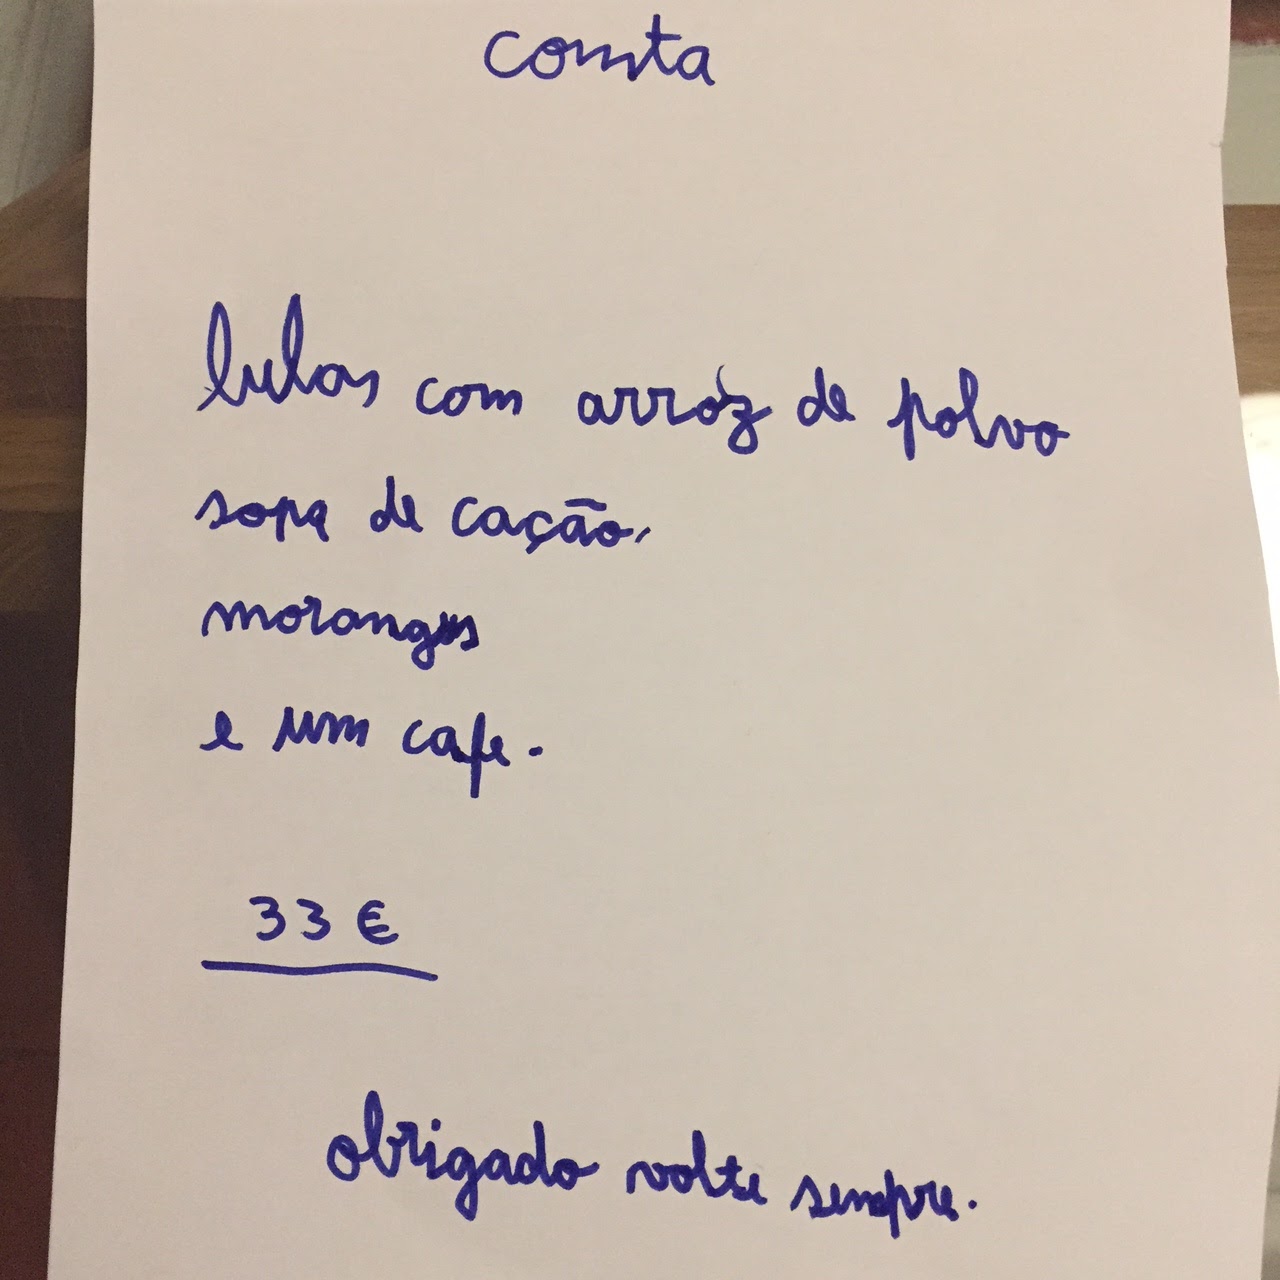 conta
lulas com arróz de polvo
sopa de cação,
morangos
e um cafe.
33 €
obrigado volte sempre.